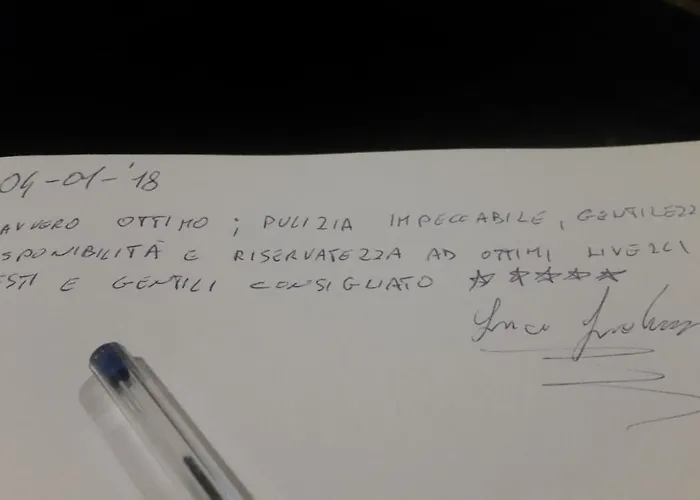 04-01-'18
AVVERO OTTIMO ; PULIZIA IMPECCABILE, GENTILEZZ
SPONIBILITÀ E RISERVATEZZA AD OTTIMI LIVELLI
ESTI E GENTILI CONSIGLIATO